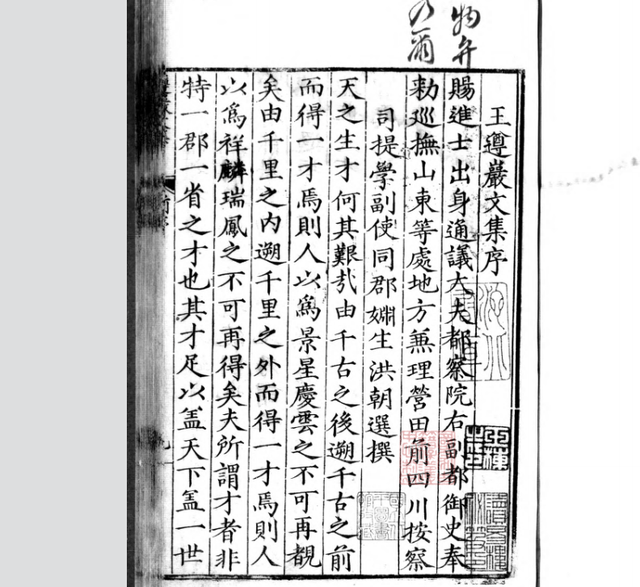 王遵巖文集序
賜進士出身通議大夫都察院右副都御史奉
勑廵撫山東等處地方兼理營田前四川按察
司提學副使同郡㛹生洪朝選撰
天之生才何其艱㢤由千古之後遡千古之前
而得一才焉則人以爲景星慶雲之不可再覩
矣由千里之內遡千里之外而得一才焉則人
以爲祥麟瑞鳳之不可再得矣夫所謂才者非
特一郡一省之才也其才足以盖天下盖一世